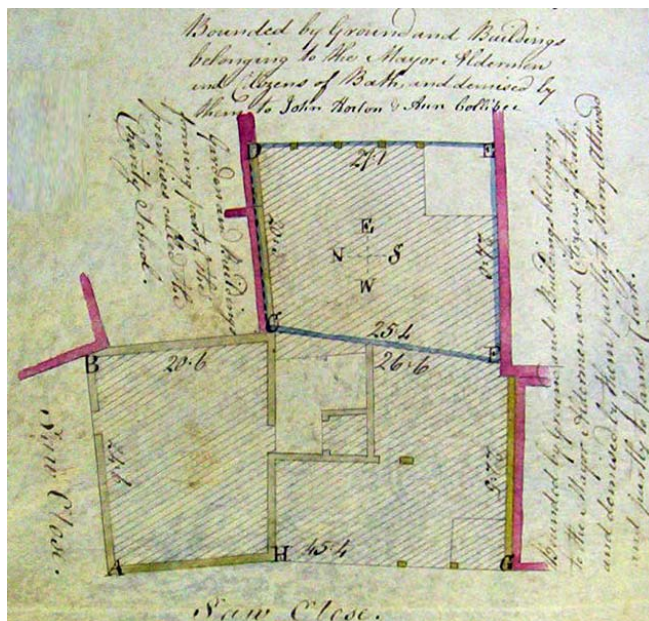 Bounded by Ground and Buildings
belonging to the Mayor Aldermen
and Citizens of Bath, and demised by
them to John Horton & Ann Collibee
Garden and Buildings
forming part of the
premises called the
Charity School.
D
E
27.1
E
N
S
W
C
25.4
F
B
20.6
26.6
24.6
22.5
A
H
45.4
G
Saw Close.
Saw Close.
Bounded by Ground and Buildings belonging
to the Mayor Aldermen and Citizens of Bath
and demised by them partly to Harry Attwood
and partly to James Clark.